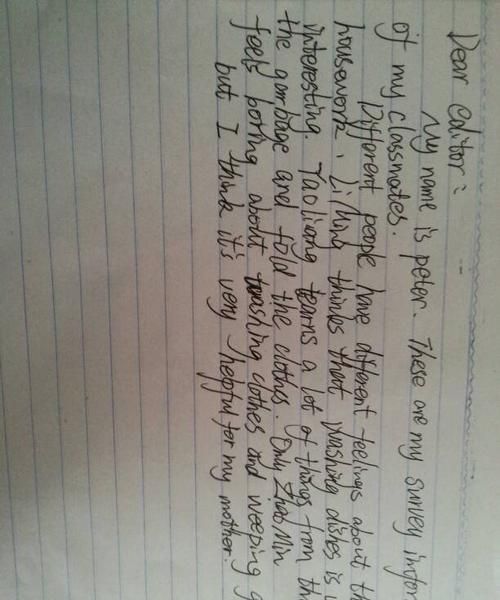 Dear editor:
My name is peter. These are my survey infor
of my classmates.
Different people have different feelings about th
housework. Li Ming things that washing dishes is
interesting. Tao liang learns a lot of things from th
the garbage and fold the clothes. Only Zhao Min
feels boring about washing clothes and weeping
but I think it's very helpful for my mother.